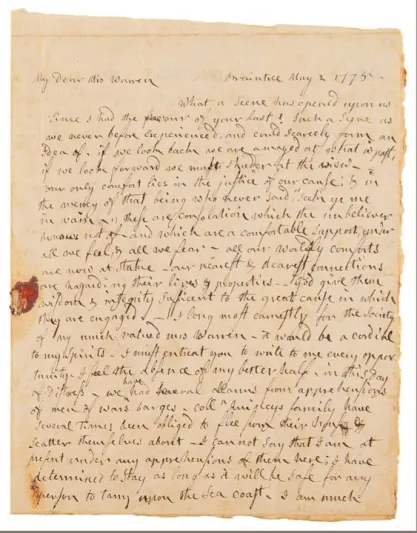 My Dear Mrs Warren Braintree May 2 1775
What a Scene has opened upon us
Since I had the favour of your last! Such a Scene as
we never before Experienced, and could scarcely form an
Idea of. if we look back we are amazed at what is past,
if we look forward we must shudder at the view.
our only comfort lies in the justice of our cause; & in
the mercy of that being who never said, "Seek ye me
in vain. these are consolation which the unbeliever
knows not of and which are a comfortable Support, under
all we feel, & all we fear - all our worldly comforts
are now at stake - our nearest & dearest connections
are hazarding their lives & properties - God give them
wisdom & integrity sufficent to the great cause in which
they are engaged - I long most earnestly for the Society
of my much valued Mrs Warren - it would be a cordial
to my Spirits - I must entreat you to write to me every oppor
tunity - I feel the absence of my better half - in this Day
of Distress - we have had several allarms from apprehensions
of men of wars barges - coll Quincys family have
Several times been obliged to flee from their house &
scatter themselves about - I cannot say that I am at
present under any apprehensions of them here; I have
determined to stay as long as it will be safe for any
person to tarry upon the Sea coast. I am much